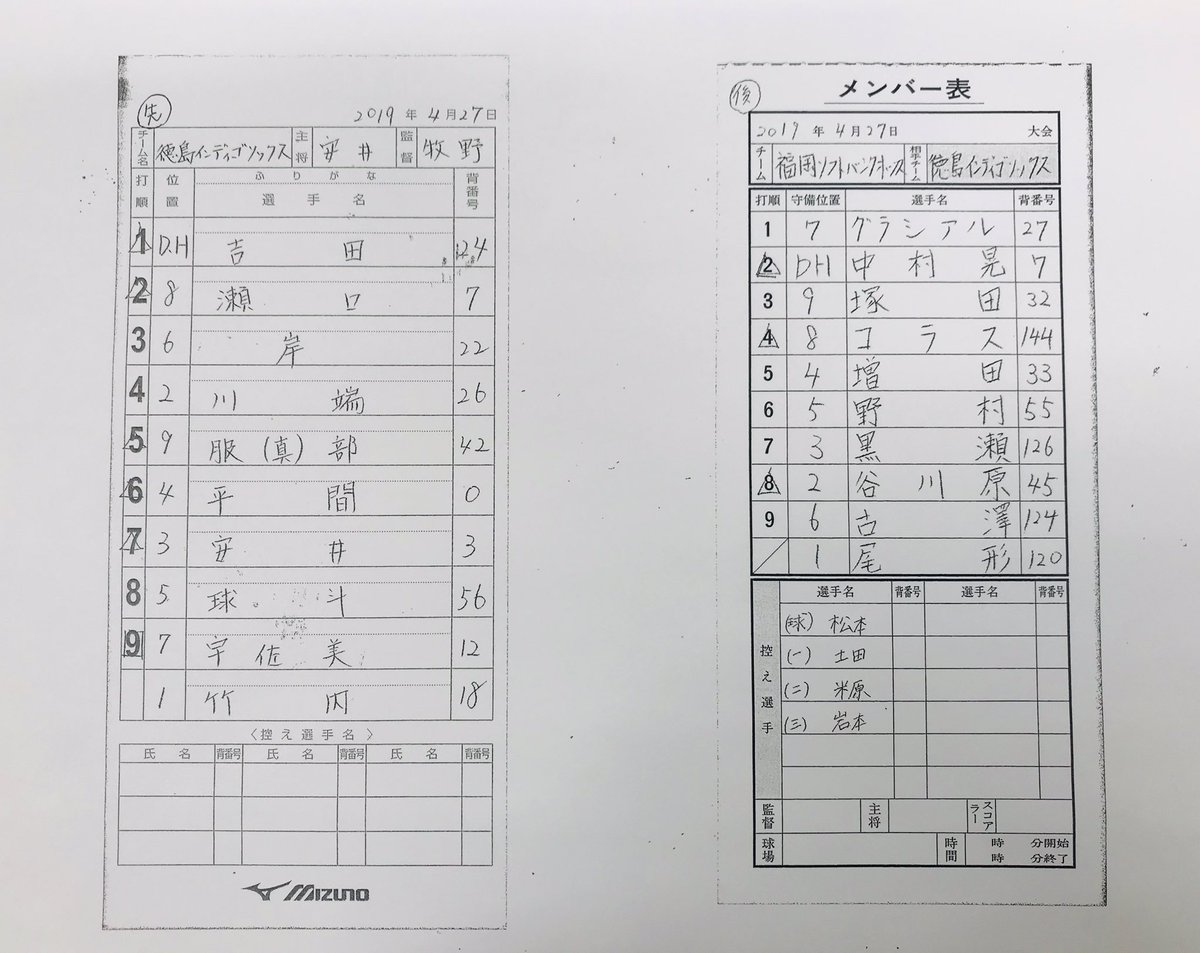 先
2019年4月27日
チーム名 徳島インディゴソックス 主将 安井 監督 牧野
打順 位置 ふりがな 選手名 背番号
1 D.H 吉田 124
2 8 瀬口 7
3 6 岸 22
4 2 川端 26
5 9 服(真)部 42
6 4 平間 0
7 3 安井 3
8 5 球斗 56
9 7 宇佐美 12
1 竹内 18
〈控え選手名〉
氏名 背番号 氏名 背番号 氏名 背番号
MIZUNO
後
メンバー表
2019年4月27日 大会
チーム 福岡ソフトバンクホークス 相手チーム 徳島インディゴソックス
打順 守備位置 選手名 背番号
1 7 グラシアル 27
2 DH 中村晃 7
3 9 塚田 32
4 8 コラス 144
5 4 増田 33
6 5 野村 55
7 3 黒瀬 126
8 2 谷川原 45
9 6 古澤 124
1 尾形 120
控え選手 選手名 背番号 選手名 背番号
(球) 松本
(一) 土田
(二) 米原
(三) 岩本
監督 主将 スコアラー
球場 時間 時 分開始
時 分終了